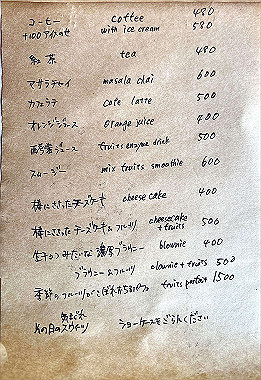 コーヒー coffee 480
+100 アイスのせ with ice cream 580
紅茶 tea 480
マサラチャイ masala chai 600
カフェラテ cafe latte 500
オレンジジュース orange juice 400
酵素ジュース fruits enzyme drink 500
スムージー mix fruits smoothie 600
棒にささったチーズケーキ cheese cake 400
棒にささったチーズケーキ&フルーツ cheesecake + fruits 500
生チョコみたいな濃厚ブラウニー blownie 400
ブラウニー&フルーツ blownie + fruits 500
季節のフルーツがこぼれおちる fruits parfait 1500
気まぐれ
その日のスウィーツ ショーケースをごらんください